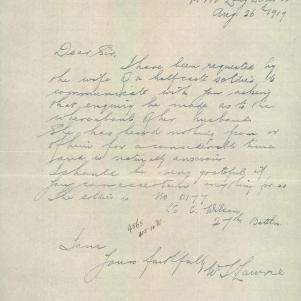 Aug 26th 1919
Dear Sir,
I have been requested by
the wife of a halfcaste soldier to
communicate with you asking
that enquiry be made as to the
whereabouts of her husband
She has heard nothing from or
of him for a considerable time
and is naturally anxious
I should be very grateful if
you can ascertain anything for us
The soldier is No 0177
C. Wilson
27th Battn
I am
Yours faithfully